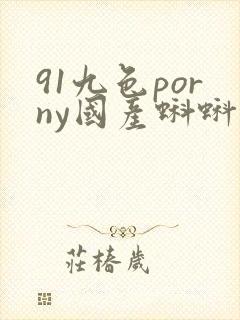 91九色por
ny國產蝌蝌
莊椿歲